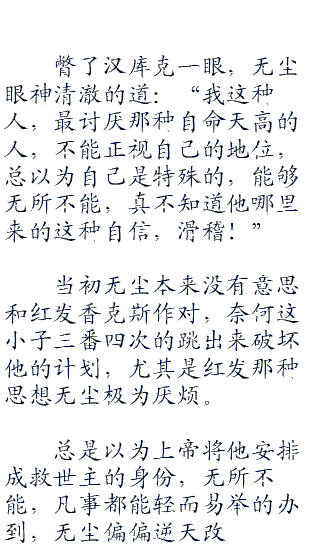 瞥了汉库克一眼，无尘
眼神清澈的道：“我这种
人，最讨厌那种自命天高的
人，不能正视自己的地位，
总以为自己是特殊的，能够
无所不能，真不知道他哪里
来的这种自信，滑稽！”
当初无尘本来没有意思
和红发香克斯作对，奈何这
小子三番四次的跳出来破坏
他的计划，尤其是红发那种
思想无尘极为厌烦。
总是以为上帝将他安排
成救世主的身份，无所不
能，凡事都能轻而易举的办
到，无尘偏偏逆天改